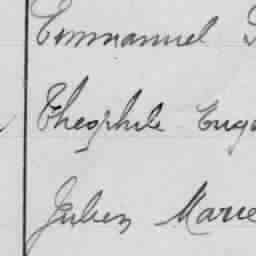 Emmanuel
Théophile Eug
Julien Marie